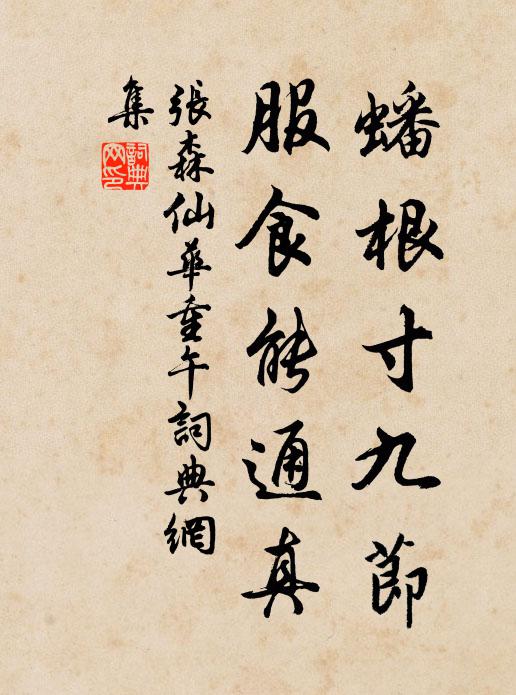 蟠根寸九節
服食能通真
張森仙華重午詞典網
集
詞典
網印